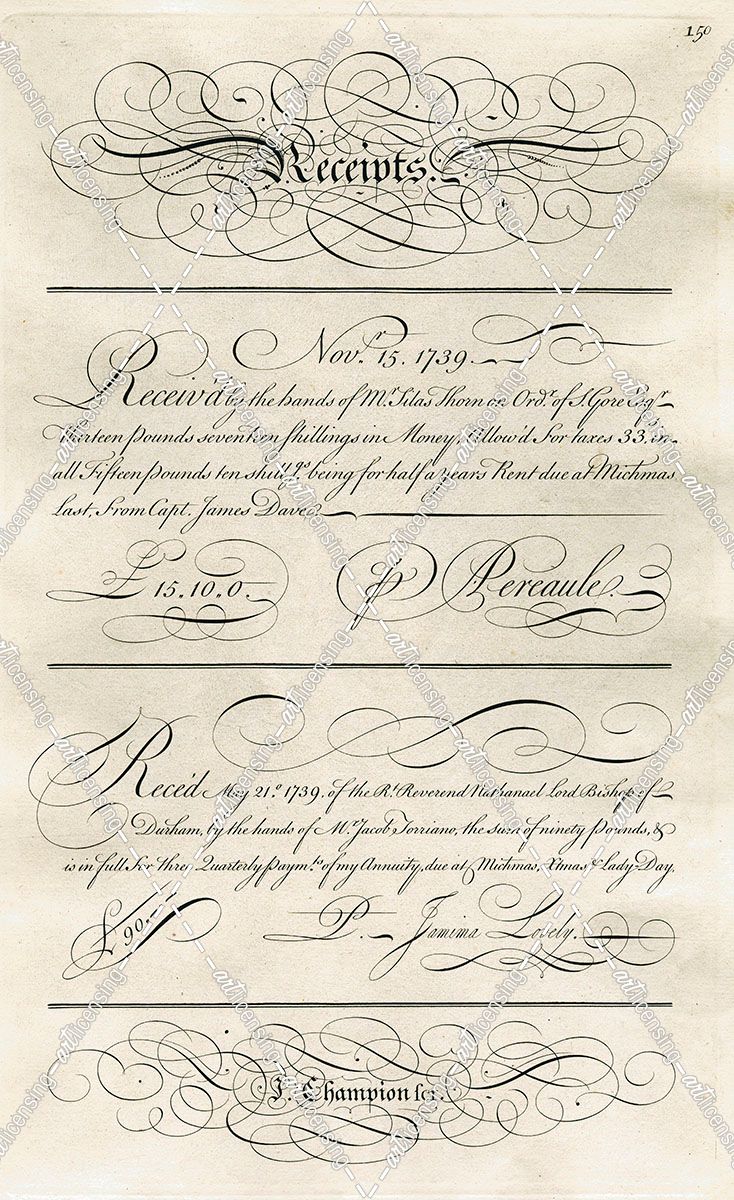 150
Receipts.
Novr. 15. 1739.
Receiv'd by the hands of Mr. Silas Thorn on Ordr. of Sr. Gore Esqr.
Thirteen pounds seventeen shillings in Money, Allow'd for taxes 33, in
all Fifteen pounds ten shillgs. being for half a years Rent due at Michmas
Last, From Capt. James Dave
£ 15. 10. 0.
P Pereaule.
Rece'd May 21o. 1739, of the Rt. Reverend Nathanael Lord Bishop of
Durham, by the hands of Mr. Jacob Torriano, the sum of ninety pounds, &
is in full for three Quarterly Paymts. of my Annuity, due at Michmas, Xtmas & Lady Day,
£ 90.
P. Jamima Lovely.
J. Champion scr.
artlicensing